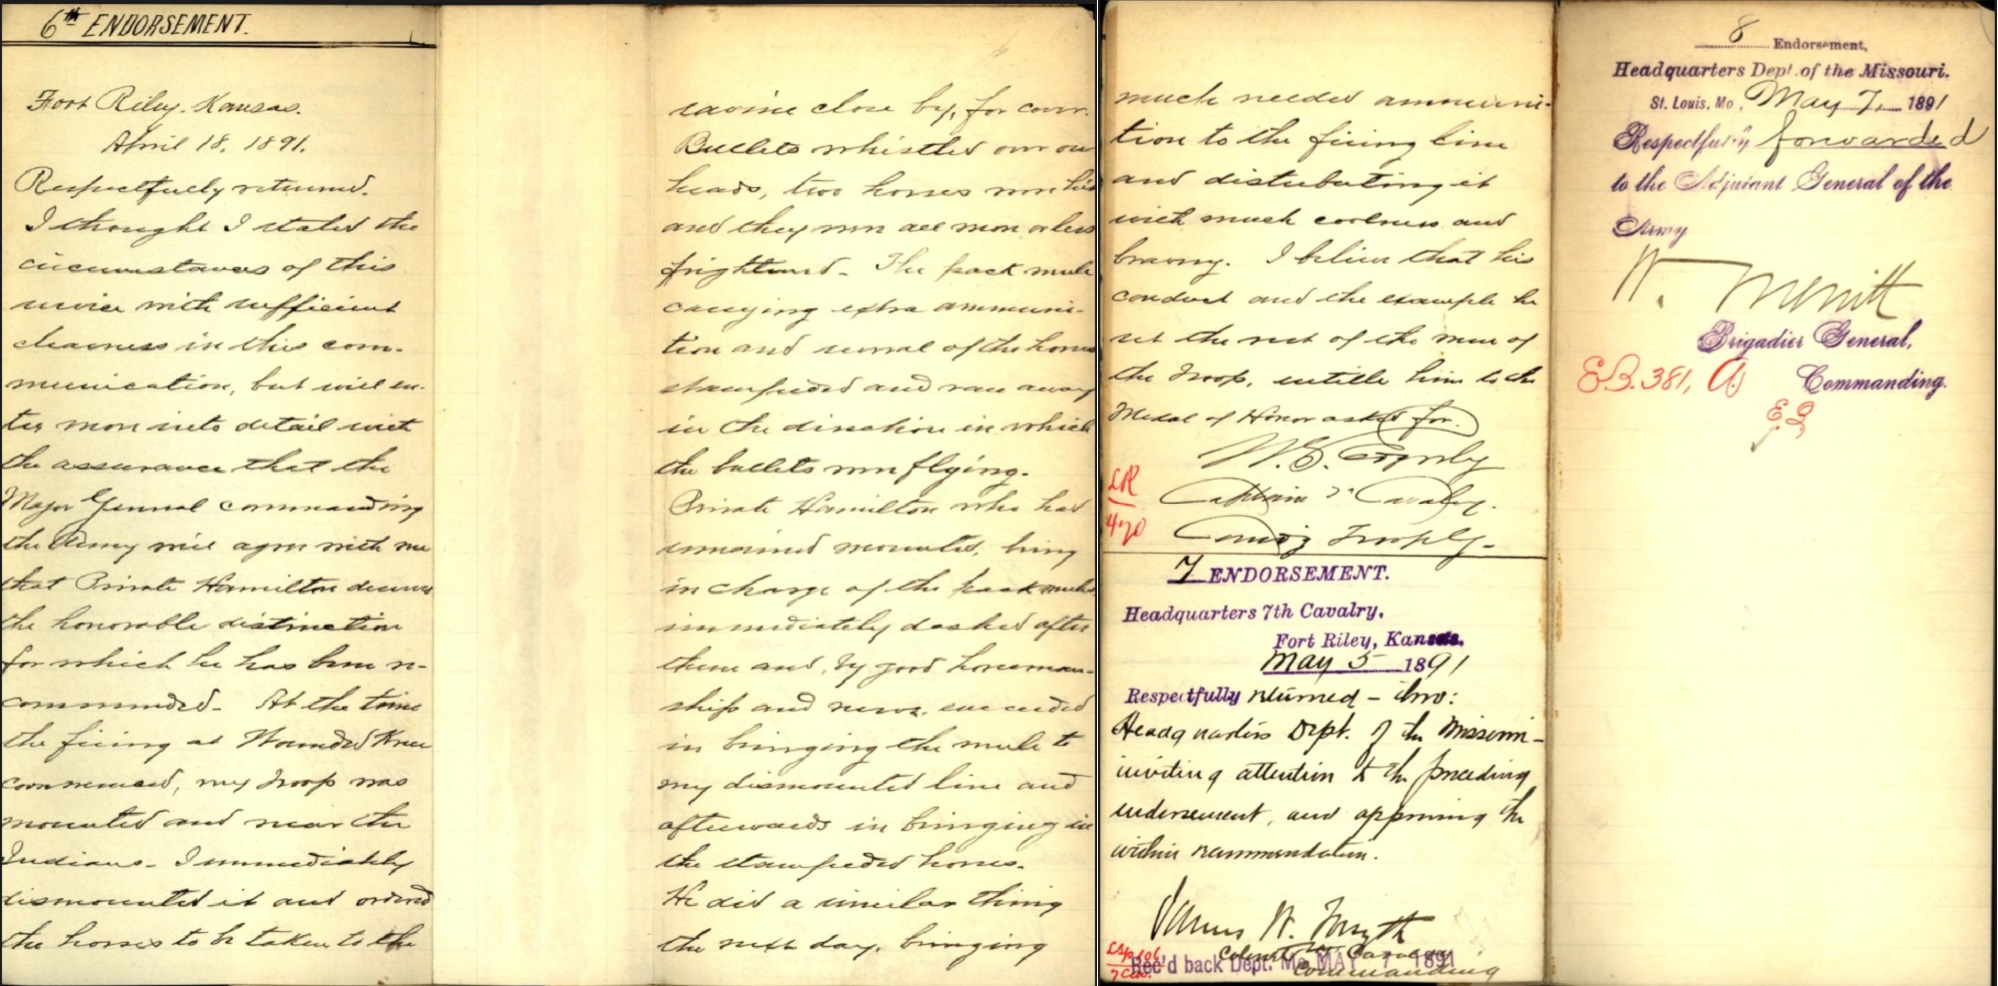 6th ENDORSEMENT.
Fort Riley. Kansas.
April 18, 1891.
Respectfully returned.
I thought I stated the
circumstances of this
service with sufficient
clearness in this com-
munication, but will en-
ter more into detail with
the assurance that the
Major General commanding
the Army will agree with me
that Private Hamilton deserves
the honorable distinction
for which he has been re-
commended. At the time
the firing at Wounded Knee
commenced, my troop was
mounted and near the
Indians. I immediately
dismounted it and ordered
the horses to be taken to the
ravine close by, for cover.
Bullets whistled over our
heads, two horses were hit
and they were all more or less
frightened. The pack mule
carrying extra ammuni-
tion and several of the horses
stampeded and ran away
in the direction in which
the bullets were flying.
Private Hamilton who had
remained mounted, being
in charge of the pack mule,
immediately dashed after
them and, by good horseman-
ship and nerve, succeeded
in bringing the mule to
my dismounted line and
afterwards in bringing in
the stampeded horses.
He did a similar thing
the next day, bringing
much needed ammuni-
tion to the firing line
and distributing it
with much coolness and
bravery. I believe that his
conduct and the example he
set the rest of the men of
the troop, entitle him to the
Medal of Honor asked for.
Captain 7" Cavalry.
Comdg Troop G.
7 ENDORSEMENT.
Headquarters 7th Cavalry,
Fort Riley, Kansas.
May 5 1891
Respectfully returned - thro:
Headquarters Dept. of the Missouri -
inviting attention to the preceding
endorsement, and approving the
within recommendation.
James W. Forsyth
Colonel 7th Cavalry
Commanding
Rec'd back Dept. Mo. MAY 7 1891
8 Endorsement,
Headquarters Dept. of the Missouri.
St. Louis, Mo., May 7, 1891
Respectfully forwarded
to the Adjutant General of the
Army
W. Merritt
Brigadier General,
E.B. 381, Commanding.